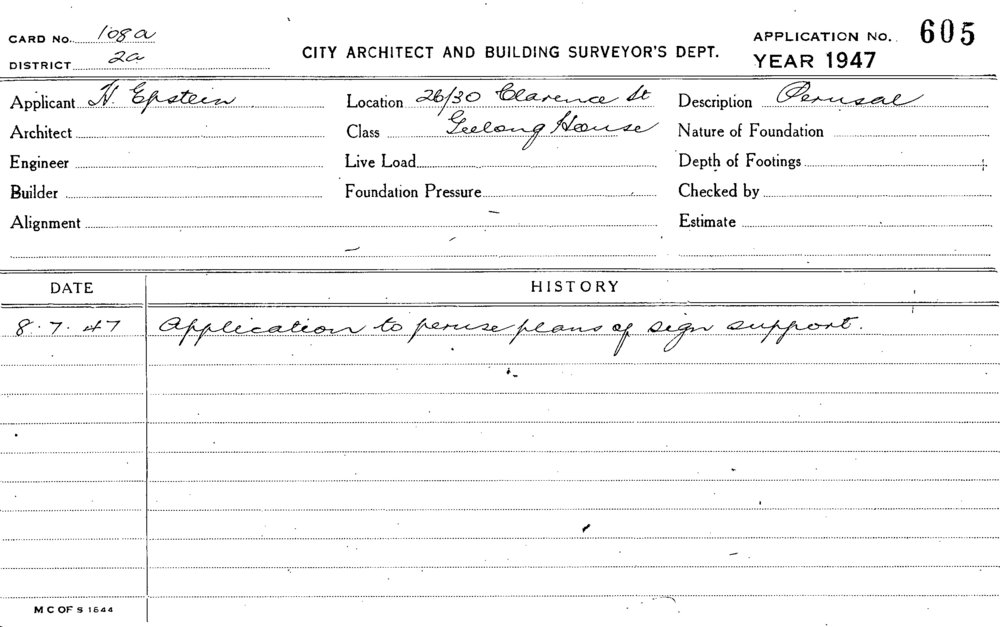 CARD NO. 108a
CITY ARCHITECT AND BUILDING SURVEYOR'S DEPT.
APPLICATION NO. 605
DISTRICT 2a
YEAR 1947
Applicant H. Epstein Location 26/30 Clarence St Description Perusal
Architect Class Geelong House Nature of Foundation
Engineer Live Load Depth of Footings
Builder Foundation Pressure Checked by
Alignment Estimate
DATE HISTORY
8.7.47 Application to peruse plans of sign support.
M C OF S 1644